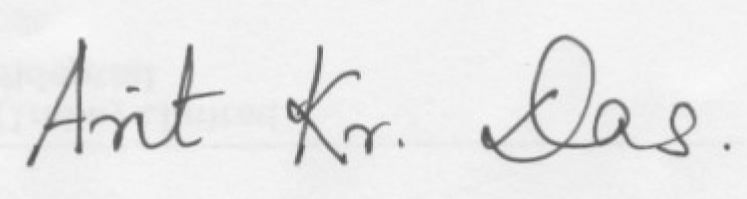 Arit Kr. Das.